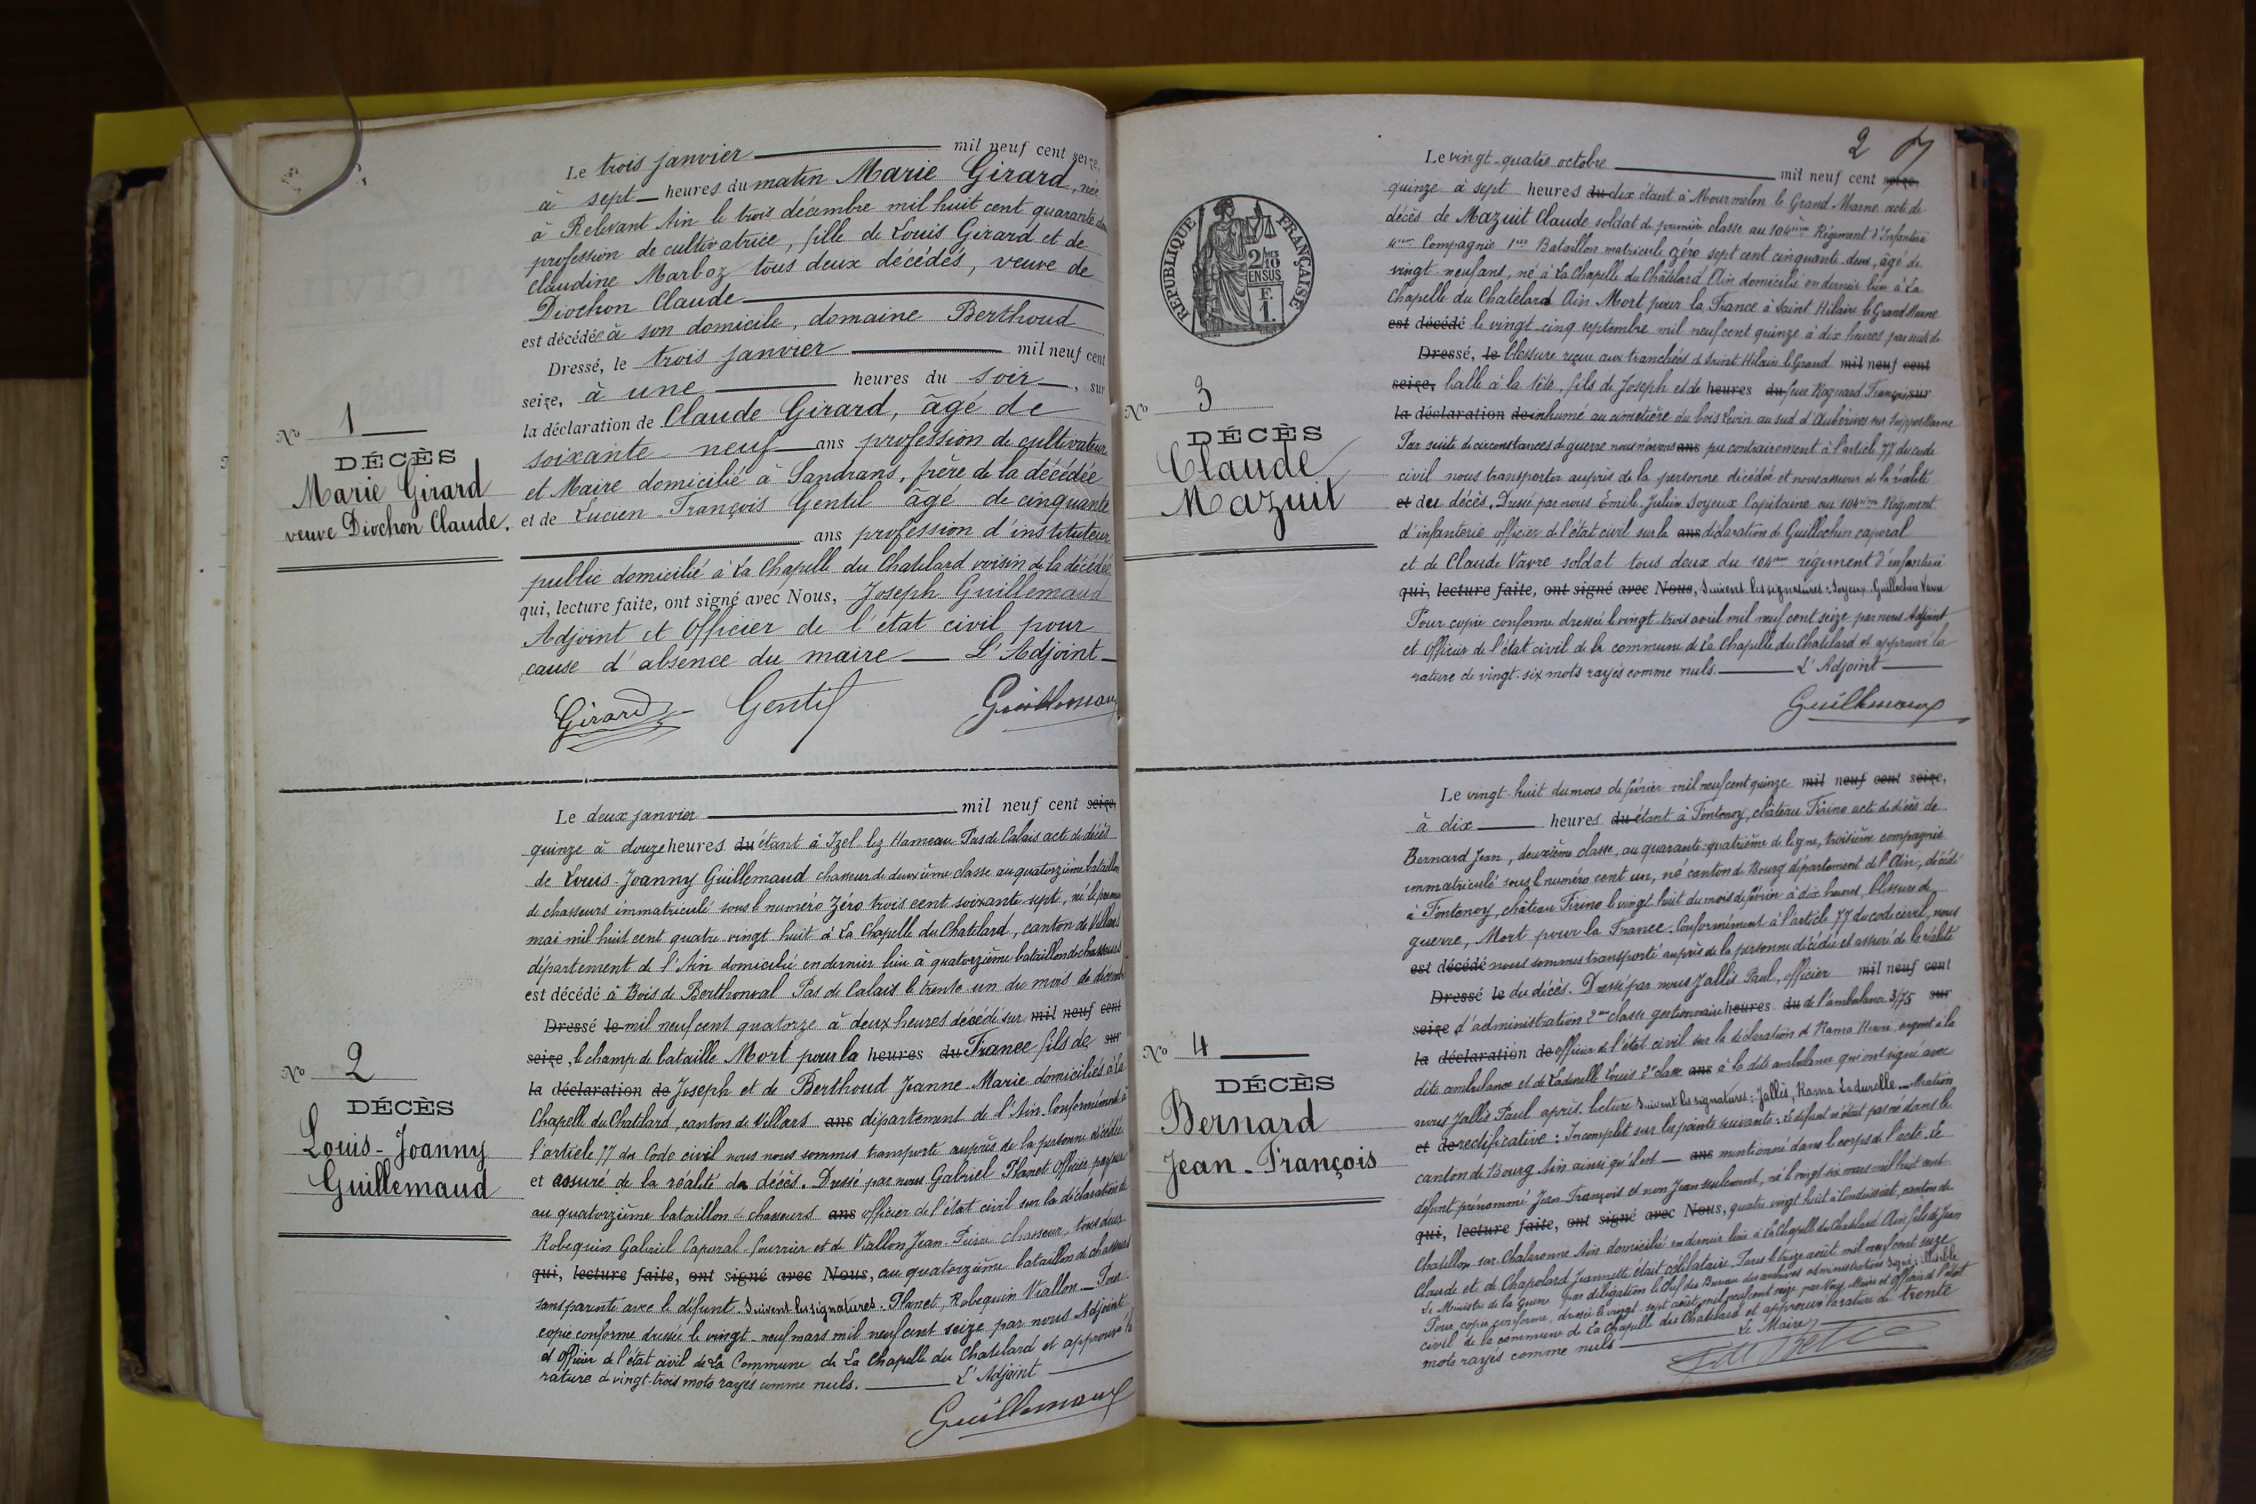 Le trois janvier mil neuf cent seize,
à sept heures du matin Marie Girard, née
à Relevant Ain le trois décembre mil huit cent quarante
profession de cultivatrice, fille de Louis Girard et de
Claudine Marboz tous deux décédés, veuve de
Diochon Claude
est décédée à son domicile, domaine Berthoud
Dressé, le trois janvier mil neuf cent
seize, à une heures du soir, sur
la déclaration de Claude Girard, âgé de
soixante neuf ans profession de cultivateur
et Maire domicilié à Sandrans, frère de la décédée
et de Lucien-François Gentil âgé de cinquante
ans profession d'instituteur
public domicilié à La Chapelle du Chatelard voisin de la décédée
qui, lecture faite, ont signé avec Nous, Joseph Guillemaud
Adjoint et Officier de l'état civil pour
cause d'absence du maire L'Adjoint
Girard Gentil Guillemaud
No 1
DÉCÈS
Marie Girard
veuve Diochon Claude.
Le deux janvier mil neuf cent seize,
quinze à douze heures du étant à Izel lez Hameau Pas de Calais acte de décès
de Louis-Joanny Guillemaud chasseur de deuxième classe au quatorzième bataillon
de chasseurs immatriculé sous le numéro zéro trois cent soixante sept, né le premier
mai mil huit cent quatre vingt huit à La Chapelle du Chatelard, canton de Villars
département de l'Ain domicilié en dernier lieu à quatorzième bataillon de chasseurs
est décédé à Bois de Berthonval Pas de Calais le trente un du mois de décembre
Dressé le mil neuf cent quatorze à deux heures décédé sur mil neuf cent
seize, le champ de bataille Mort pour la heures du France fils de sur
la déclaration de Joseph et de Berthoud Jeanne-Marie domiciliés à la
Chapelle du Chatelard, canton de Villars ans département de l'Ain. Conformément à
l'article 77 du Code civil nous nous sommes transporté auprès de la personne décédée
et assuré de la réalité du décès. Dressé par nous Gabriel Planet Officier payeur
au quatorzième bataillon de chasseurs ans officier de l'état civil sur la déclaration de
Robequin Gabriel Caporal-fourrier et de Viallon Jean-Pierre chasseur, tous deux
qui, lecture faite, ont signé avec Nous, au quatorzième bataillon de chasseurs
sans parenté avec le défunt. Suivent les signatures. Planet, Robequin Viallon. Pour
copie conforme dressée le vingt-neuf mars mil neuf cent seize par nous Adjoint
et Officier de l'état civil de la Commune de La Chapelle du Chatelard et approuvé la
rature de vingt-trois mots rayés comme nuls. L'Adjoint
Guillemaud
No 2
DÉCÈS
Louis-Joanny
Guillemaud
2
Le vingt-quatre octobre mil neuf cent seize,
quinze à sept heures du dix étant à Mourmelon le Grand Marne acte de
décès de Mazuit Claude soldat de première classe au 104ème Régiment d'Infanterie
4ème Compagnie 1er Bataillon matricule zéro sept cent cinquante deux, âgé de
vingt-neuf ans, né à La Chapelle du Châtelard Ain domicilié en dernier lieu à La
Chapelle du Chatelard Ain Mort pour la France à Saint Hilaire le Grand Marne
est décédé le vingt-cinq septembre mil neuf cent quinze à dix heures par suite de
Dressé, le blessure reçue aux tranchées de Saint Hilaire le Grand mil neuf cent
seize, balle à la tête, fils de Joseph et de heures du feue Roquard Françoise sur
la déclaration de inhumé au cimetière du bois Levin au sud d'Aubérives sur Suippes Marne
Par suite de circonstances de guerre nous n'avons ans pu contrairement à l'article 77 du code
civil nous transporter auprès de la personne décédée et nous assurer de la réalité
et de du décès. Dressé par nous Emile-Julien Joyeux Capitaine au 104ème Régiment
d'infanterie officier de l'état civil sur la ans déclaration de Guillochin caporal
et de Claude Vavre soldat tous deux du 104ème régiment d'infanterie
qui, lecture faite, ont signé avec Nous, Suivent les signatures: Joyeux Guillochin Vavre
Pour copie conforme dressée le vingt-trois avril mil neuf cent seize par nous Adjoint
et Officier de l'état civil de la commune de La Chapelle du Chatelard et approuvé la
rature de vingt-six mots rayés comme nuls. L'Adjoint
Guillemaud
RÉPUBLIQUE FRANÇAISE
2/10
EN SUS
F.
1.
No 3
DÉCÈS
Claude
Mazuit
Le vingt-huit du mois de février mil neuf cent quinze mil neuf cent seize,
à dix heures du étant à Fontenoy, château Firino acte de décès de
Bernard Jean, deuxième classe, au quarante-quatrième de ligne, troisième compagnie
immatriculé sous le numéro cent un, né canton de Bourg département de l'Ain, décédé
à Fontenoy, château Firino le vingt-huit du mois de février à dix heures, blessure de
guerre, Mort pour la France. Conformément à l'article 77 du code civil, nous
est décédé nous sommes transporté auprès de la personne décédée et assuré de la réalité
Dressé le du décès. Dressé par nous Jallès Paul, officier mil neuf cent
seize d'administration 2ème classe gestionnaire heures du de l'ambulance 3/75 sur
la déclaration de officier de l'état civil sur la déclaration de Rama Henri sergent à la
dite ambulance et de Ladurelle Louis 2e classe ans à la dite ambulance qui ont signé avec
nous Jallès Paul après lecture Suivent les signatures: Jallès, Rama Ladurelle. Mention
et de rectificative: Incomplet sur les points suivants: Le défunt n'était pas né dans le
canton de Bourg Ain ainsi qu'il est ans mentionné dans le corps de l'acte. Le
défunt prénommé Jean-François et non Jean seulement, né le vingt-six mars mil huit cent
qui, lecture faite, ont signé avec Nous, quatre vingt huit à Condeissiat, canton de
Chatillon sur Chalaronne Ain domicilié en dernier lieu à La Chapelle du Chatelard Ain fils de Jean
Claude et de Chapolard Jeannette était célibataire. Paris le treize août mil neuf cent seize
Le Ministre de la Guerre par délégation le Chef du Bureau des archives administratives Signé: illisible
Pour copie conforme, dressée le vingt-sept août mil neuf cent seize par Nous Maire et Officier de l'état
civil de la commune de La Chapelle du Chatelard et approuvé la rature de trente
mots rayés comme nuls Le Maire
No 4
DÉCÈS
Bernard
Jean-François